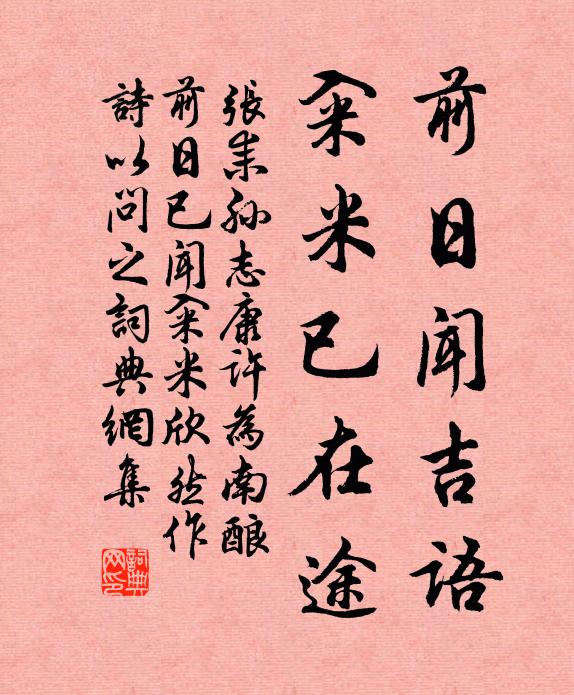 前日闻吉语
籴米已在途
張耒孙志康许為南酿
前日已闻籴米欣然作
詩以問之詞典網集
詞典网印